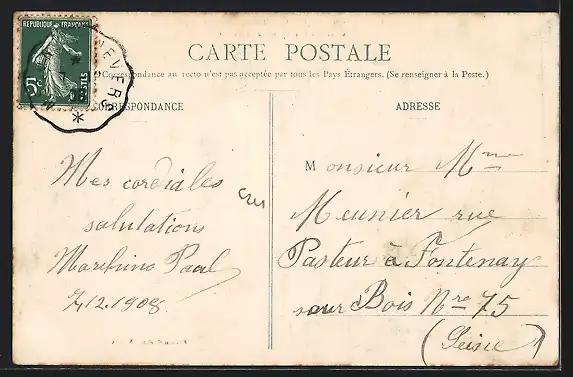 REPUBLIQUE FRANÇAISE
5c
POSTES
NEVERS
CARTE POSTALE
(Correspondance au recto n'est pas acceptée par tous les Pays Étrangers. (Se renseigner à la Poste.)
CORRESPONDANCE
Mes cordiales
salutations
Paul
7/12.1908
ADRESSE
Monsieur Mme
Meunier rue
Pasteur à Fontenay
sous Bois Nro 75
(Seine)